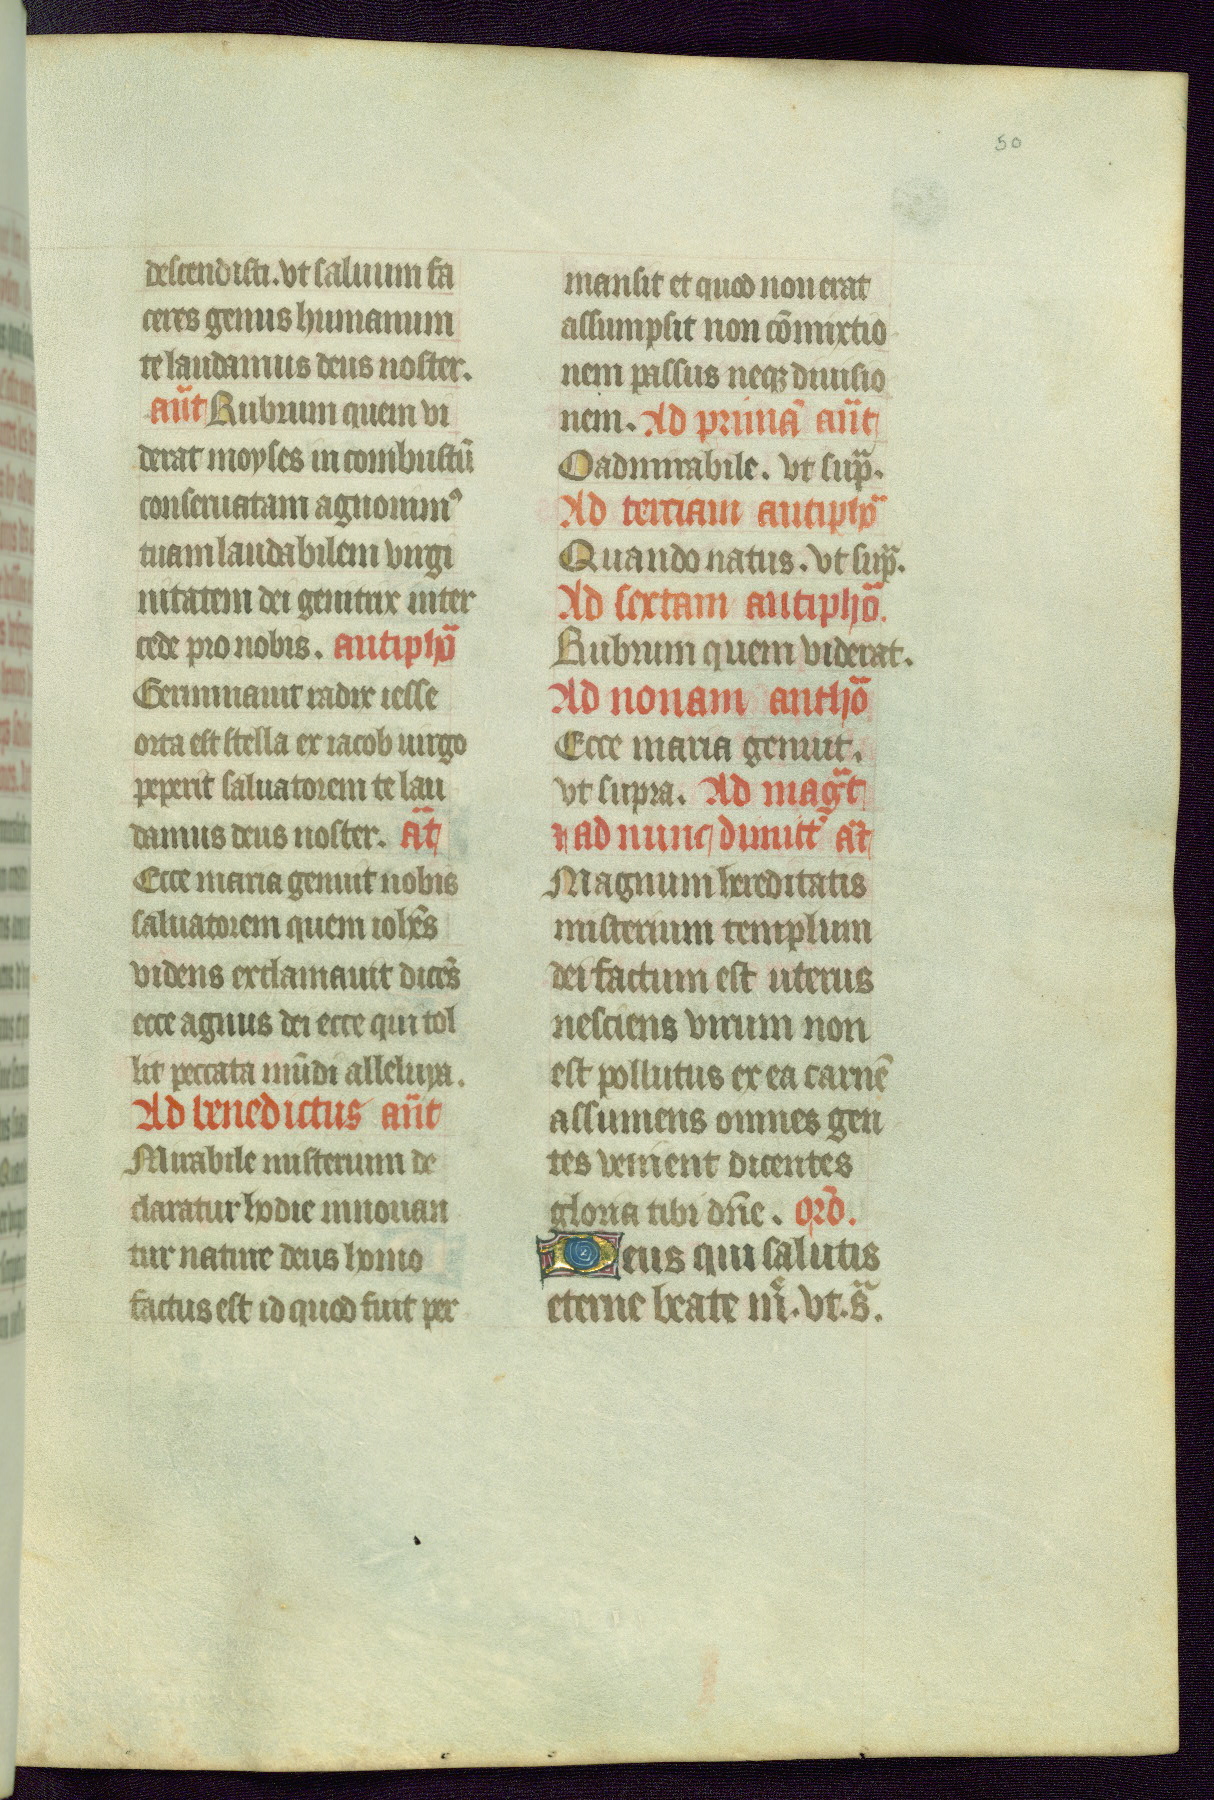 50
descendisti. vt saluum fa
ceres genus humanum
te laudamus deus noster.
añt Rubrum quem vi
derat moyses in combustū
conseruatam agnouimꝰ
tuam laudabilem virgi
nitatem dei genitrix inter
cede pro nobis. antiphō
Germinauit radix iesse
orta est stella ex iacob uirgo
peperit saluatorem te lau
damus deus noster. āt
Ecce maria genuit nobis
saluatorem quem ioh̄es
videns exclamauit dicēs
ecce agnus dei ecce qui tol
lit peccata mūdi alleluya.
Ad benedictus añt
Mirabile misterium de
claratur hodie innouan
tur nature deus homo
factus est id quod fuit per
mansit et quod non erat
assumpsit non cōmixtio
nem passus neqꝫ diuisio
nem. Ad primā añt
O admirabile. vt sup̄.
Ad terciam antiphō
Quando natus. vt sup̄.
Ad sextam antiphō.
Rubrum quem viderat.
Ad nonam anthō
Ecce maria genuit.
vt supra. Ad mag̃t
⁊ ad nunc dimitt̉ āt
Magnum hereditatis
misterium templum
dei factum est uterus
nesciens virum non
est pollutus ex ea carnē
assumens omnes gen
tes venient dicentes
gloria tibi dñe. orō.
Deus qui salutis
eterne beate m̄. vt. s̄.